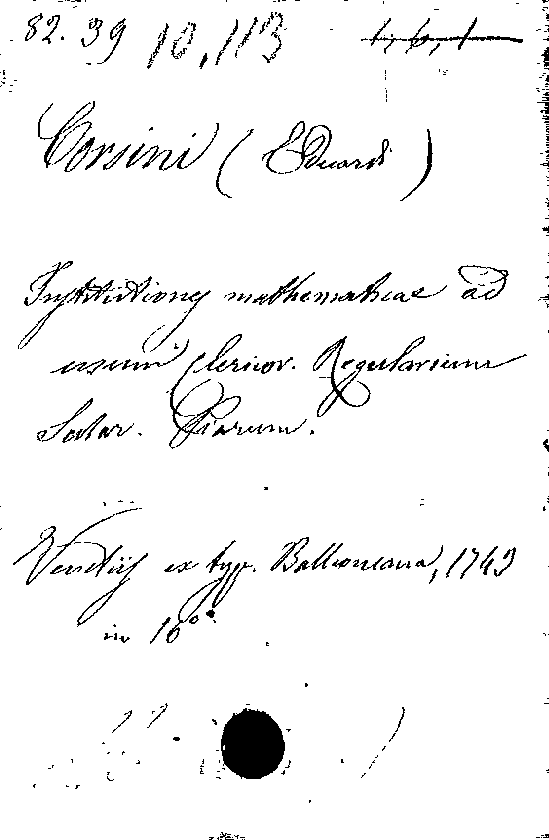 82. 39 10,113 1,6,1
Corsini (Eduardi)
Institutiones mathematicae ad
usum Clericor. Regularium
Scolar. Piarum.
Venetiis ex typ. Balleoniana, 1743
in 16°.